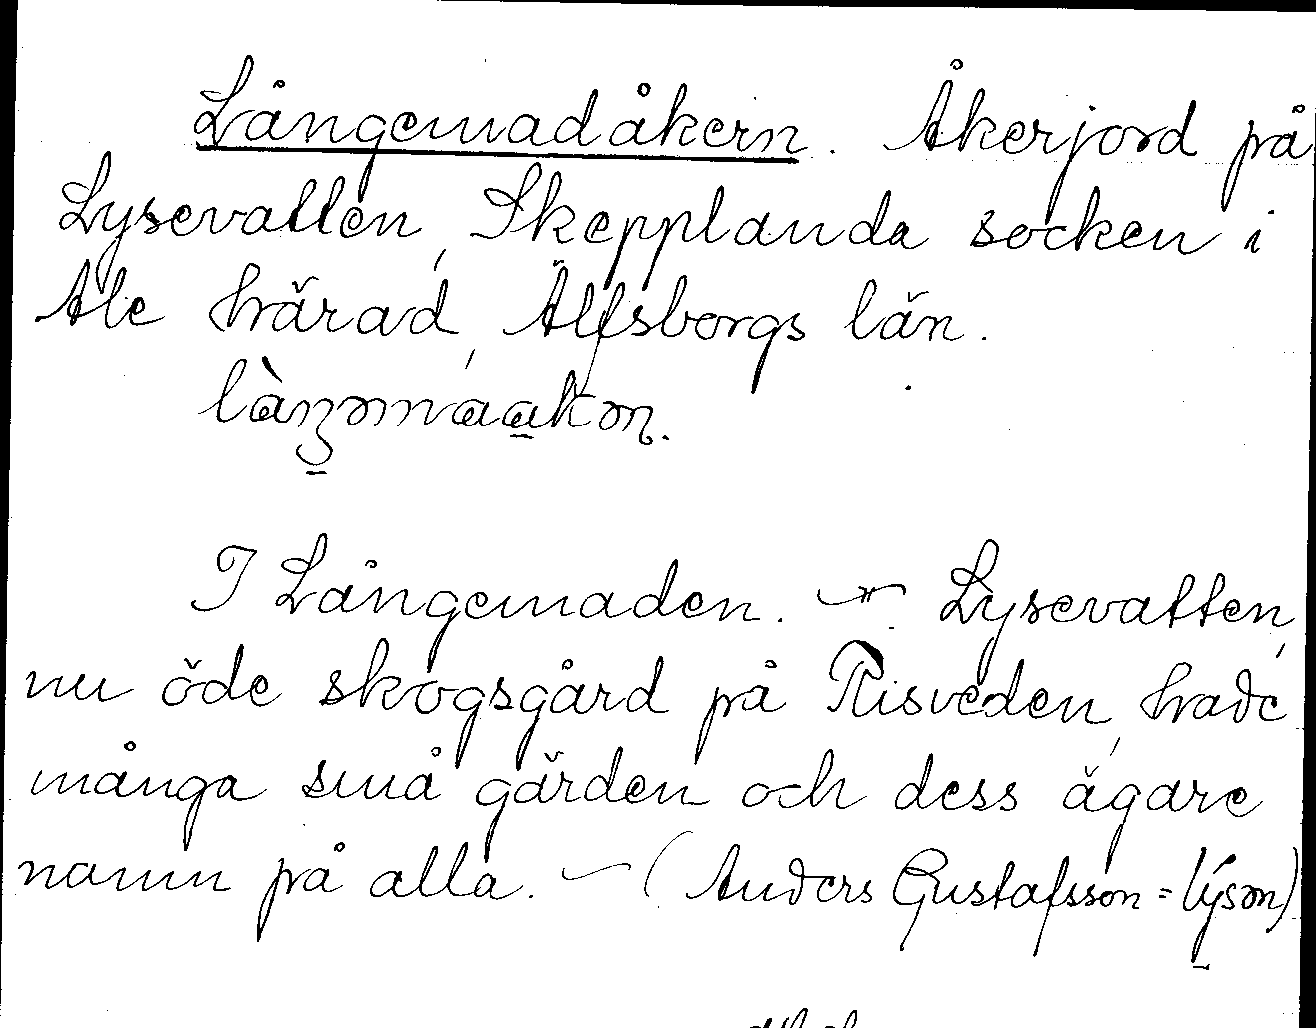 Långemadåkern. Åkerjord på
Lysevatten, Skepplanda socken i
Ale härad, Älfsborgs län.
I Långemaden. — Lysevatten,
nu öde skogsgård på Risveden, hade
många små gärden och dess ägare
namn på alla. — (Anders Gustafsson = Lýsən)